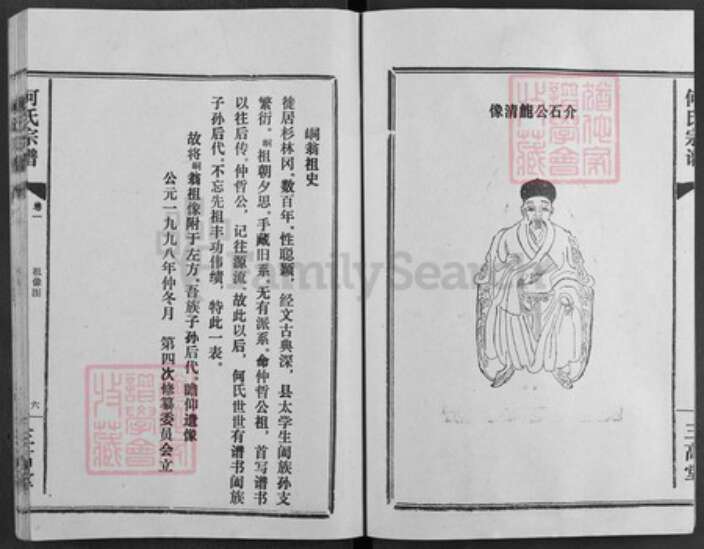 介石公龍清像
何氏宗谱
三高堂
峒翁祖史
徙居杉林冈。数百年。性聪颖。经文古典深，县太学生阖族孙支
繁衍。峒祖朝夕思。手藏旧系。无有派系。命仲哲公祖，首写谱书
以往后传。仲哲公，记往源流。故此以后，何氏世世有谱书阖族
子孙后代。不忘先祖丰功伟绩，特此一表。
故将峒翁祖像附于左方。吾族子孙后代。瞻仰遗像
公元一九九八年仲冬月　第四次修纂委员会立
何氏宗谱
卷一
祖像图
六
三高堂
FamilySearch